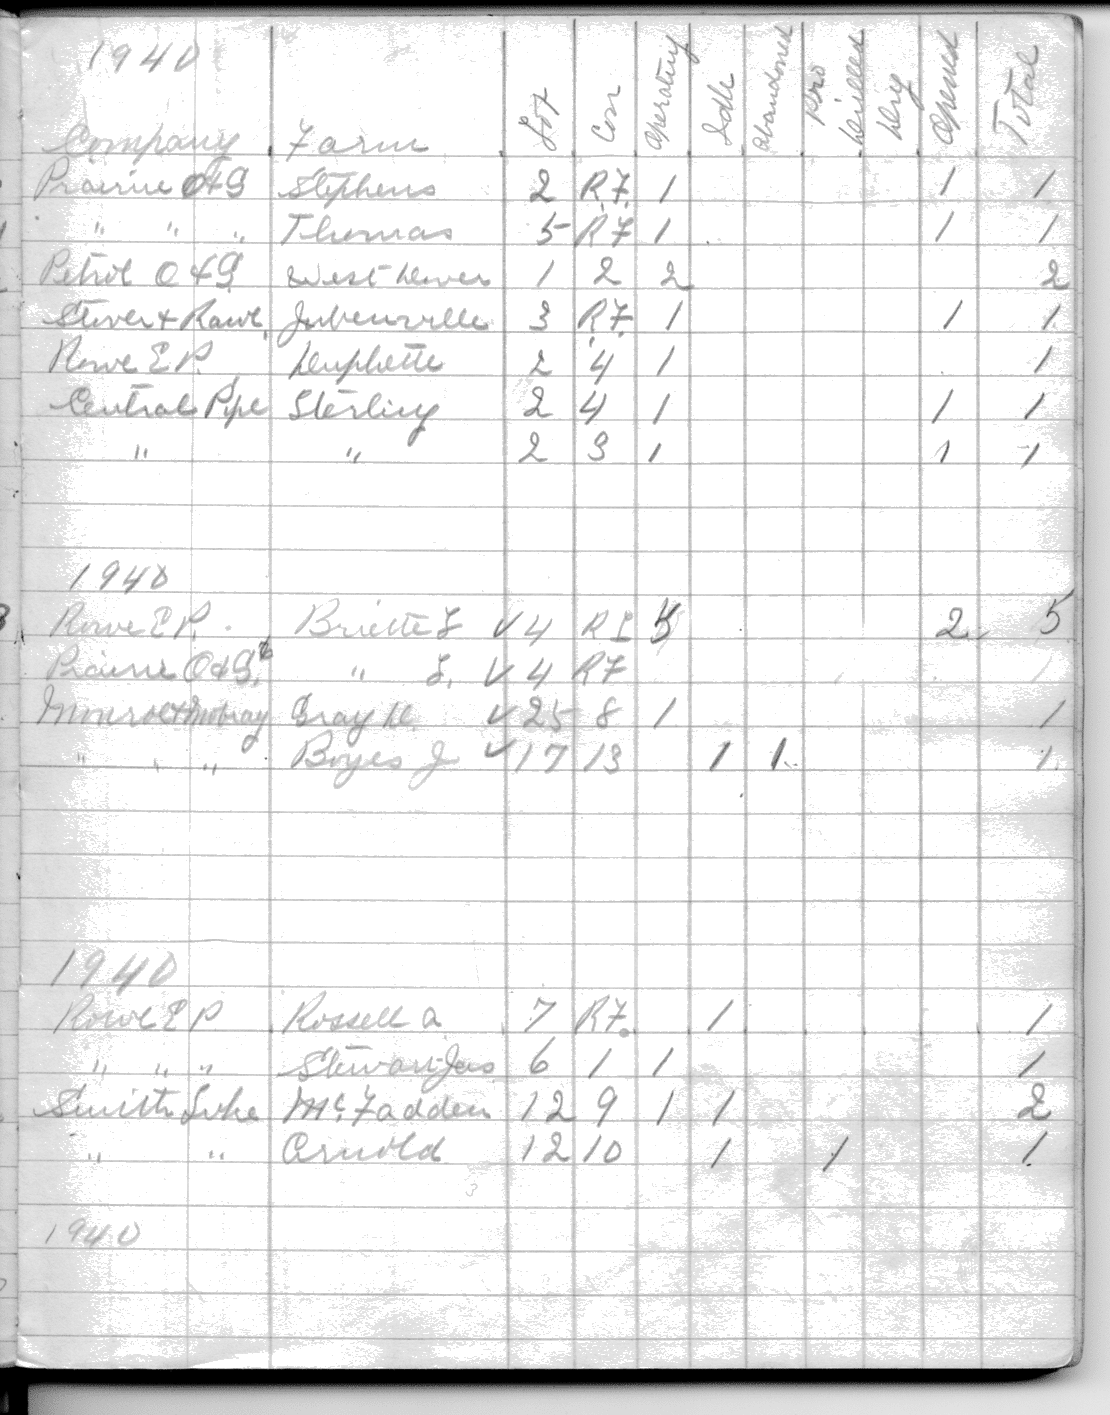 1940
Company Farm Lot Con Operating Idle Abandoned Pro Drilled Dry Opened Total
Prairie O+G Stephens 2 R.F. 1 1 1
" " " Thomas 5 R F 1 1 1
Petrol O+G West Dover 1 2 2 2
Stover + Rowe Jubenville 3 R.F. 1 1 1
Rowe E P. 2 4 1 1
Central Pipe Sterling 2 4 1 1 1
" " 2 3 1 1 1
1940
Rowe E P. Briette L ✓ 4 R I 5 2 5
Prairie O+G. " L. ✓ 4 R F 1
Monroe + Mobray Gray H. ✓ 25 8 1 1
" " " Boyes J ✓ 17 13 1 1 1
1940
Rowe E P Rossell A 7 R.F. 1 1
" " " Stewart Jas 6 1 1 1
Smith Luke McFadden 12 9 1 1 2
" " Arnold 12 10 1 1 1
1940